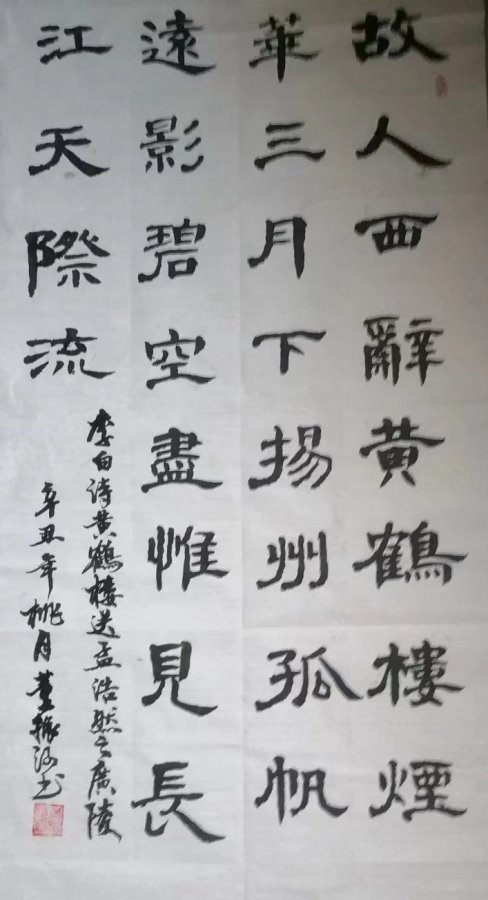 故人西辭黃鶴樓煙
華三月下揚州孤帆
遠影碧空盡惟見長
江天際流
李白诗黄鶴楼送孟浩然之廣陵
辛丑年桃月董
书